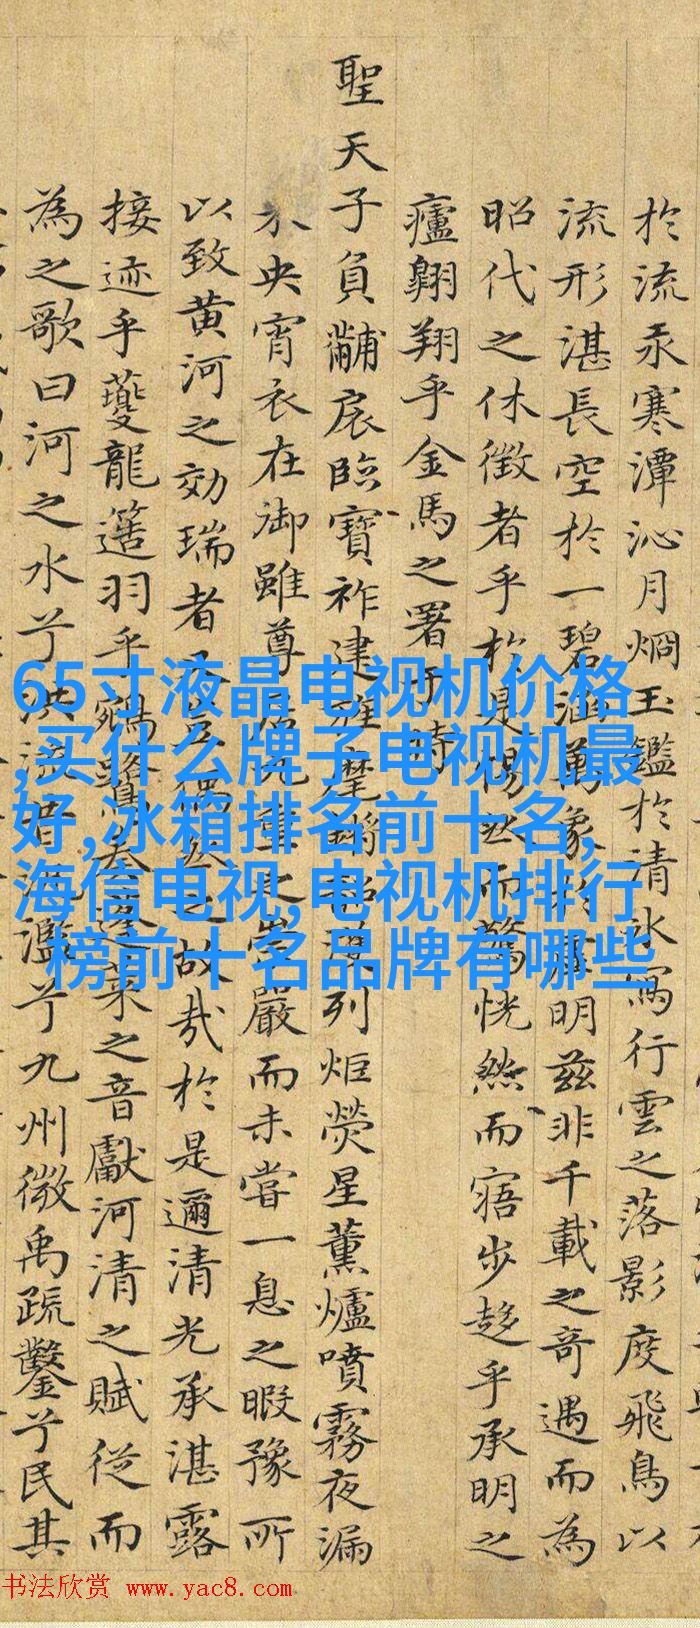 於流汞寒潭沁月烱玉鑑於清氷寫行雲之落影度飛鳥以
流形湛長空於一碧涵萬象於明茲非千載之奇遇而為
昭代之休徵者乎於是惕然而驚恍然而寤步趍乎承明之
廬翱翔乎金馬之署于時
聖天子負黼扆臨寶祚建麾列炬熒星薰爐噴霧夜漏
未央宵衣在御雖尊居九重之崇嚴而未嘗一息之暇豫所
以致黄河之効瑞者是豈偶然之故哉於是邇清光承湛露
接迹乎夔龍簉羽乎鵷鷺奏蓬萊之音獻河清之賦從而
為之歌曰河之水兮洪流昔汎濫兮九州微禹疏鑿兮民其
65寸液晶电视机价格
,买什么牌子电视机最
好,冰箱排名前十名,
海信电视,电视机排行
榜前十名品牌有哪些
书法欣赏 www.yac8.com